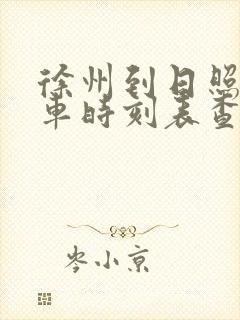 徐州到日照
车时刻表查
岑小京